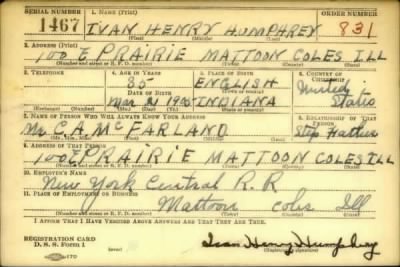 SERIAL NUMBER 1. NAME (Print) ORDER NUMBER
1467 IVAN HENRY HUMPHREY 831
(First) (Middle) (Last)
2. ADDRESS (Print)
100 E PRAIRIE MATTOON COLES ILL
(Number and street or R. F. D. number) (Town) (County) (State)
3. TELEPHONE 4. AGE IN YEARS 5. PLACE OF BIRTH 6. COUNTRY OF CITIZENSHIP
35 ENGLISH United
DATE OF BIRTH (Town or county)
Mar 2 INDIANA States
(Exchange) (Number) (Mo.) (Day) (Yr.) (State or country)
7. NAME OF PERSON WHO WILL ALWAYS KNOW YOUR ADDRESS 8. RELATIONSHIP OF THAT PERSON
Mr C. A. McFARLAND Step Father
(Mr., Mrs., Miss) (First) (Middle) (Last)
9. ADDRESS OF THAT PERSON
100 E PRAIRIE MATTOON COLES ILL
(Number and street or R. F. D. number) (Town) (County) (State)
10. EMPLOYER'S NAME
New York Central R.R
11. PLACE OF EMPLOYMENT OR BUSINESS
Mattoon Coles Ill
(Number and street or R. F. D. number) (Town) (County) (State)
I AFFIRM THAT I HAVE VERIFIED ABOVE ANSWERS AND THAT THEY ARE TRUE.
REGISTRATION CARD
D. S. S. Form 1 Ivan Henry Humphrey
(Registrant's signature)